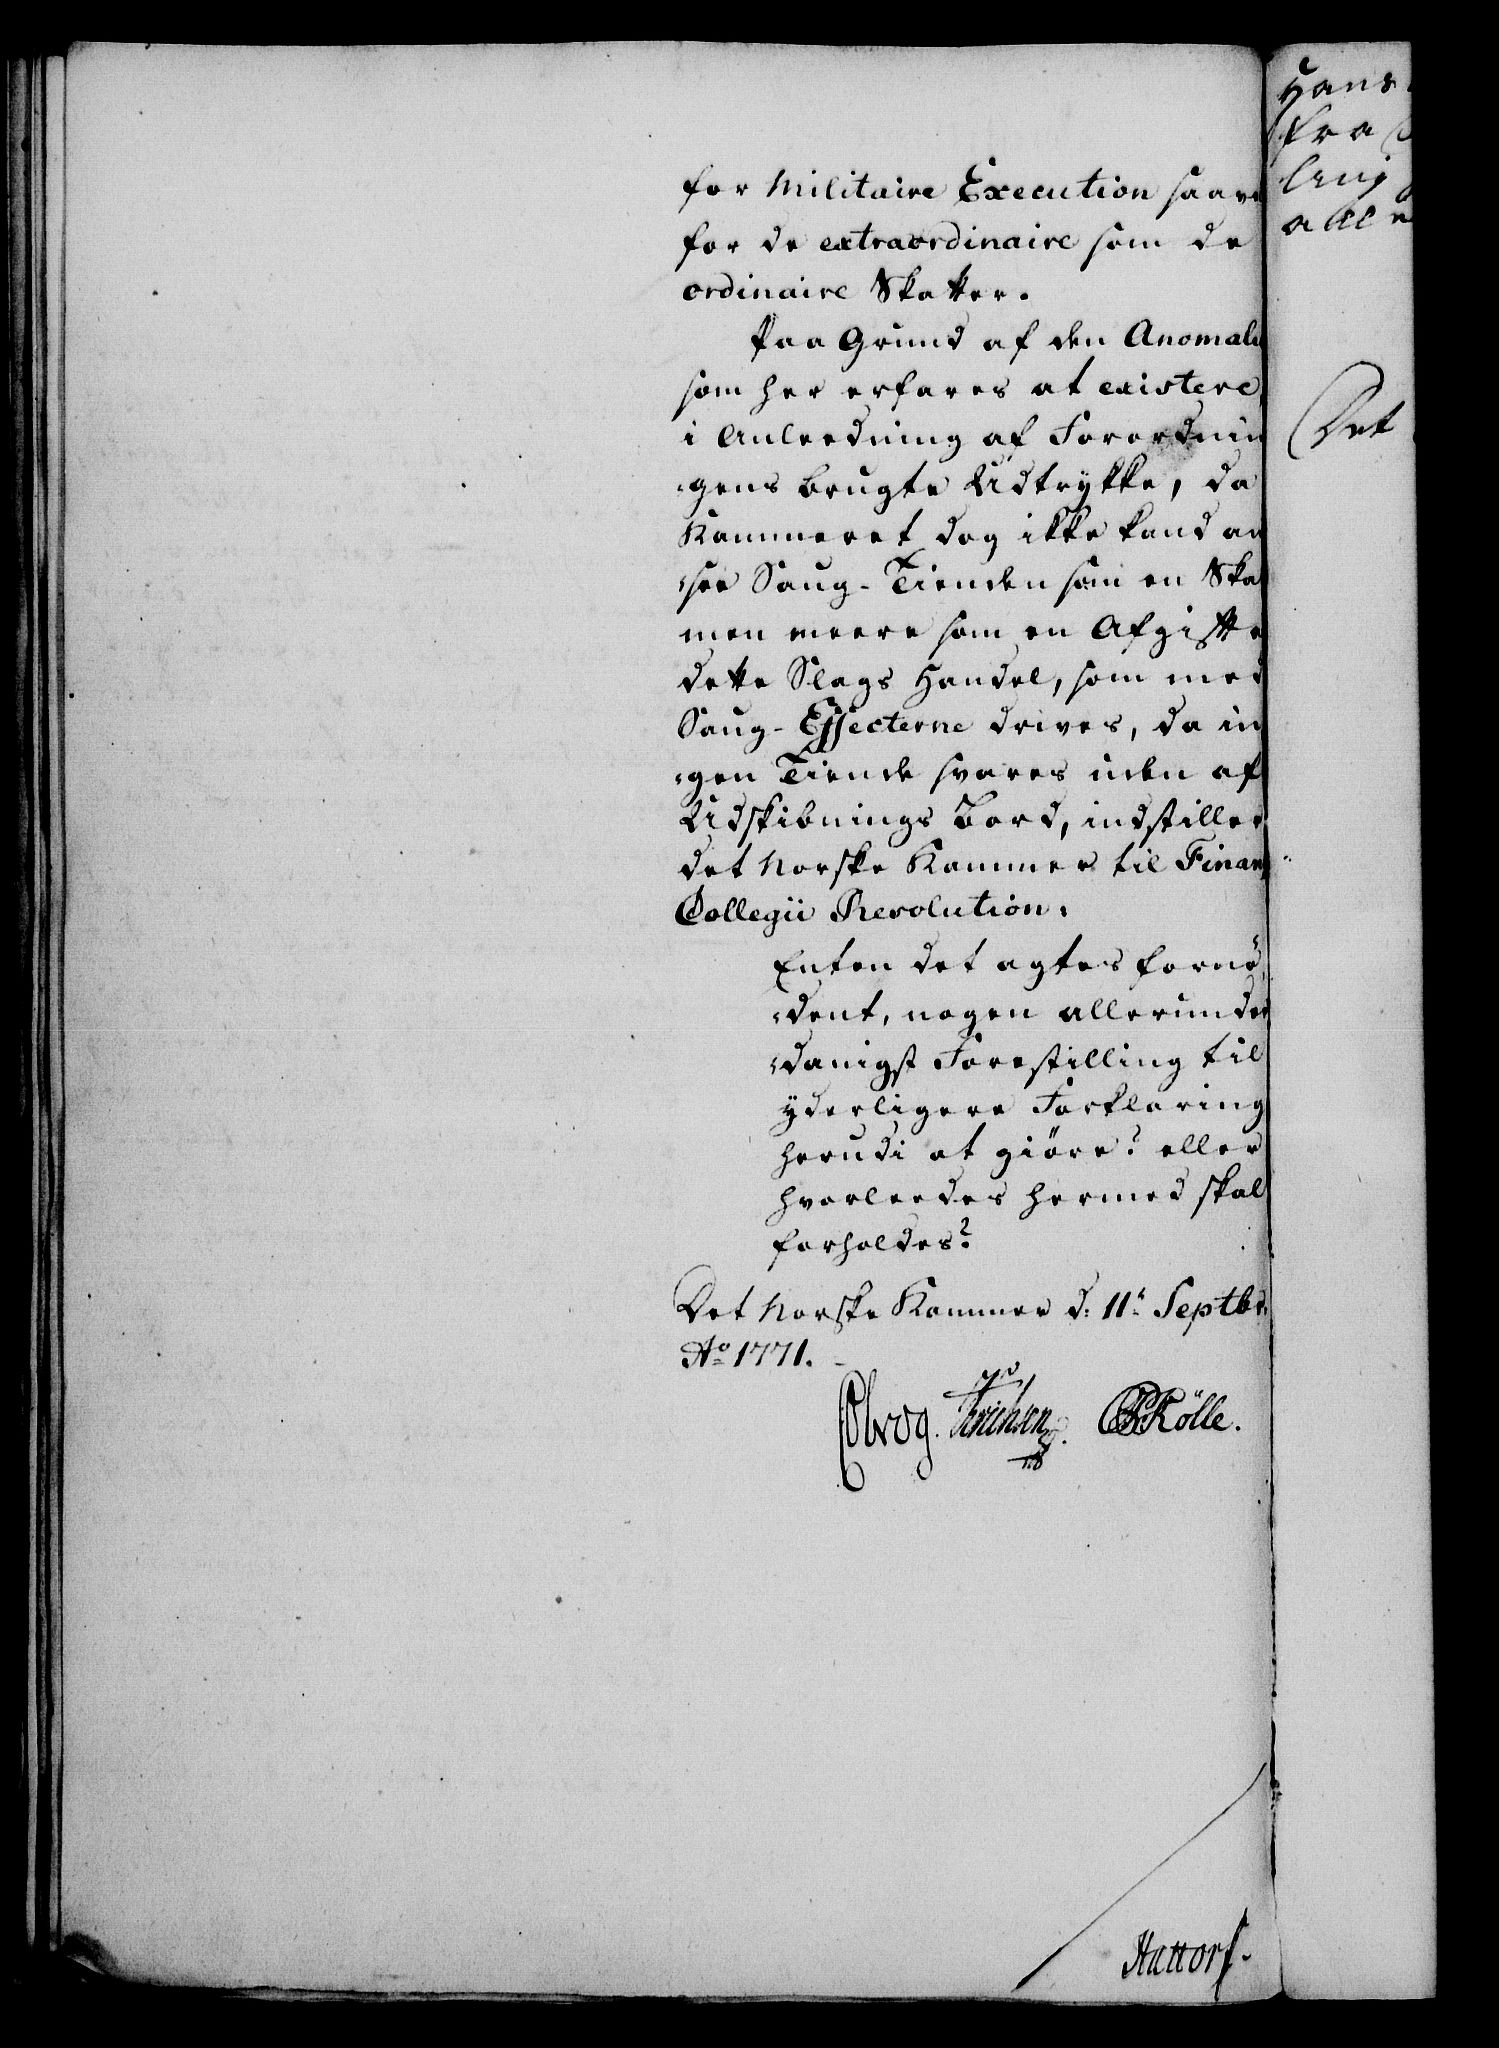 for Militaire Execution saave
for de extraordinaire som de
ordinaire Skatter.
Paa Grund af den Anomalie
som her erfares at existere,
i Anleedning af Forordnin
gens brugte Udtrykke, da
Kammeret dog ikke kand an
see Saug-Tienden som en Ska
men meere som en Afgift
dette Slags Handel, som med
Saug-Effecterne drives, da in
gen Tiende svares uden af
Udskibnings Bord, indstiller
det Norske Kammer til Finanz
Collegii Resolution.
Enten det agtes fornø
dent, nogen allerunder
danigst Forestilling til
yderligere Forklaring
herudi at giöre? eller
hvorleedes hermed skal
forholdes?
Det Norske Kammer d: 11t Septbr.
Ao 1771.
Erichsen. Rölle.
Hattorf.
Hans
fra
ling
alle
Det